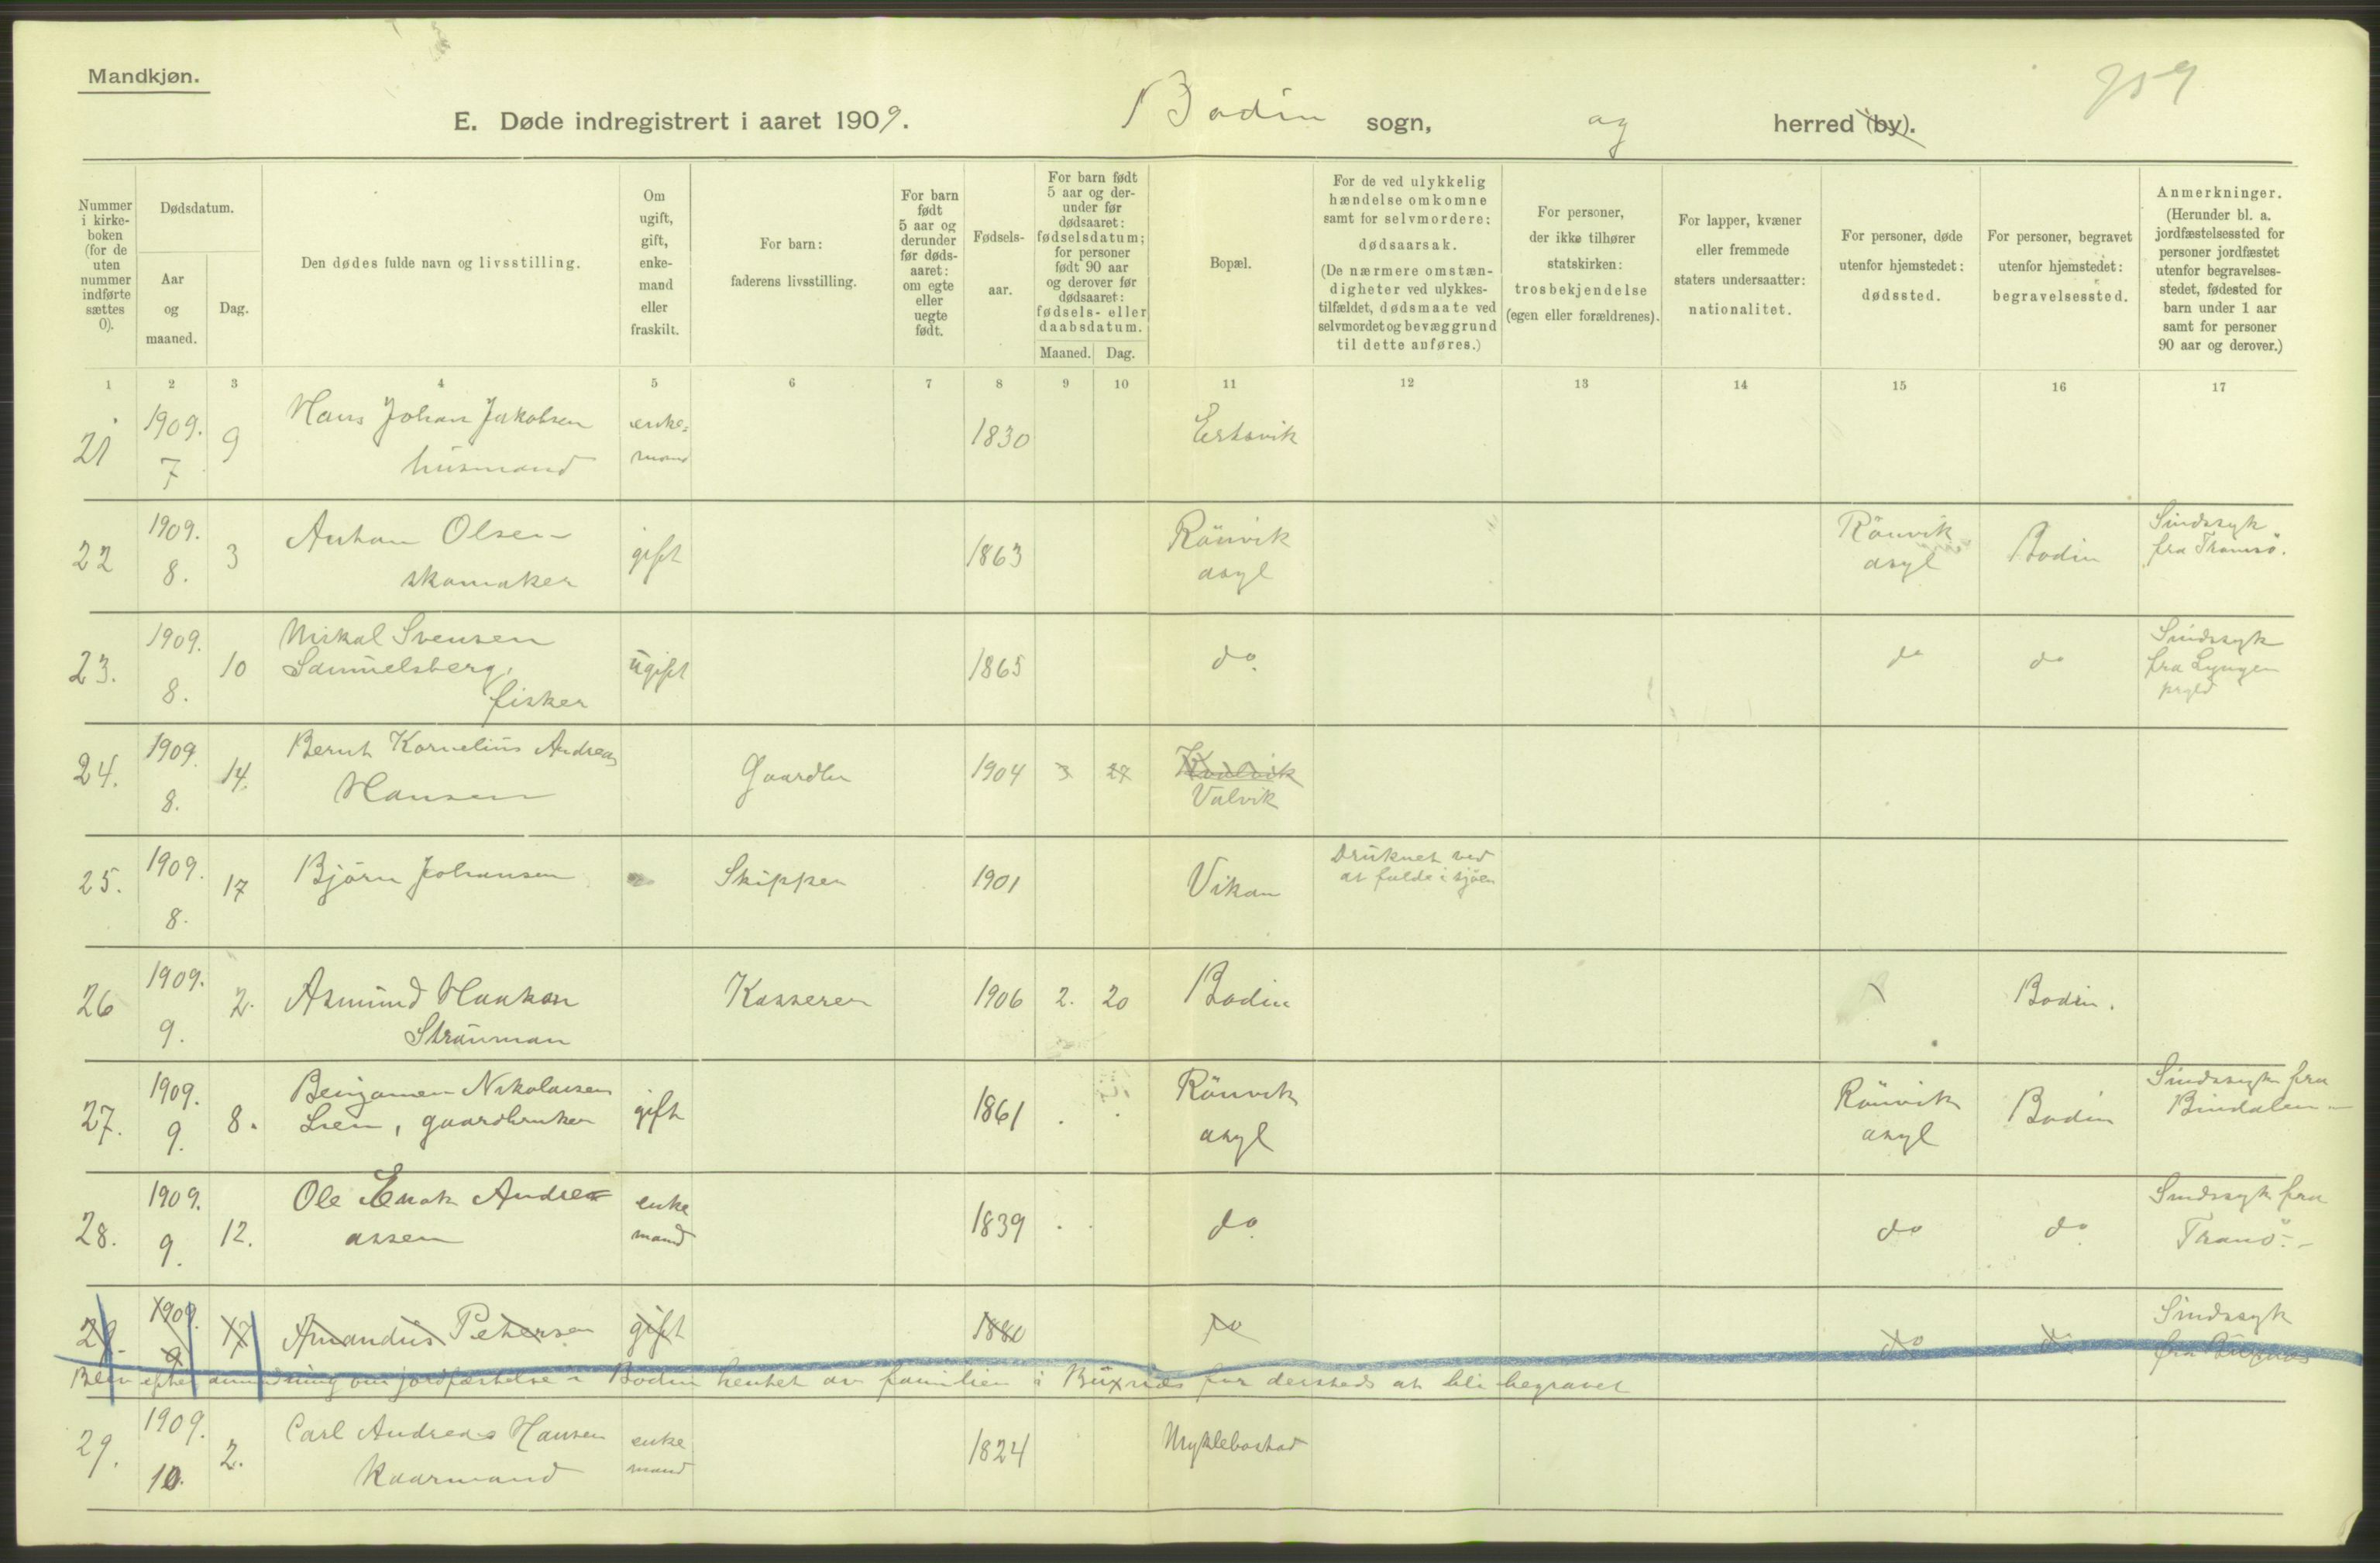 Mandkjøn.
E. Døde indregistrert i aaret 1909. Bodin sogn, og herred (by).
Nummer i kirke-boken (for de uten nummer indførte sættes 0).
Dødsdatum.
Aar og maaned.
Dag.
Den dødes fulde navn og livsstilling.
Om ugift, gift, enke-mand eller fraskilt.
For barn: faderens livsstilling.
For barn født 5 aar og derunder før døds-aaret: om egte eller uegte født.
Fødsels-aar.
For barn født 5 aar og der-under før dødsaaret: fødselsdatum; for personer født 90 aar og derover før dødsaaret: fødsels- eller daabsdatum.
Maaned. Dag.
Bopæl.
For de ved ulykkelig hændelse omkomne samt for selvmordere: dødsaarsak. (De nærmere omstæn-digheter ved ulykkes-tilfældet, dødsmaate ved selvmordet og bevæggrund til dette anføres.)
For personer, der ikke tilhører statskirken: trosbekjendelse (egen eller forældrenes).
For lapper, kvæner eller fremmede staters undersaatter: nationalitet.
For personer, døde utenfor hjemstedet: dødssted.
For personer, begravet utenfor hjemstedet: begravelsessted.
Anmerkninger. (Herunder bl. a. jordfæstelsessted for personer jordfæstet utenfor begravelses-stedet, fødested for barn under 1 aar samt for personer 90 aar og derover.)
1 2 3 4 5 6 7 8 9 10 11 12 13 14 15 16 17
21 1909. 7 9 Hans Johan Jakobsen husmand enke-mand 1830 Ertsvik
22 1909. 8. 3 Anton Olsen skomaker gift 1863 Rönvik asyl Rönvik asyl Bodin Sindssyk fra Tromsö.
23. 1909. 8. 10 Mikal Svensen Samuelsberg, fisker ugift 1865 do. do do Sindssyk fra Lyngen prgld
24. 1909. 8. 14. Bernt Kornelius Andreas Hansen Gaardbr 1904 3 27 Valvik
25. 1909. 8. 17 Björn Johansen Skipper 1901 Vikan Druknet ved at falde i sjöen
26 1909. 9. 2. Asmund Haakon Strauman Kasserer 1906 2. 20 Bodin Bodin.
27. 1909. 9. 8. Benjamen Nikolaisen Lien, gaardbruker gift 1861 Rönvik asyl Rönvik asyl Bodin Sindssyk fra Bindalen
28. 1909. 9. 12. Ole Enok Andreassen enke mand 1839 do. do do. Sindssyk fra Tranö.
29. 1909. 9 17 Amandus Petersen gift 1880 do do do Sindssyk fra Buxnæs
Blev efter anmeldning om jordfæstelse i Bodin hentet av familien i Buxnæs for dersteds at bli begravet
29. 1909. 10. 2. Carl Andreas Hansen Kaarmand enke mand 1824 Myklebostad